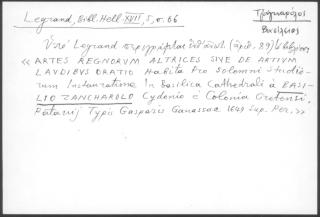 Legrand, Bibl. Hell. XVII, 5, σ. 66
Τζαγκαρόλος
Βασίλειος
Ὑπὸ Legrand περιγράφεται ὑπ' ἀριθ. (ἀριθ. 89)
« ARTES REGNORUM ALTRICES SIVE DE ARTIUM
LAUDIBUS ORATIO Habita Pro Solemni Studio-
rum Instauratione In Basilica Cathedrali à BASI-
LIO ZANCHAROLO Cydonio è Colonia Cretensi.
Patavij Typis Gasparis Ganassae 1649 Sup. Per. »